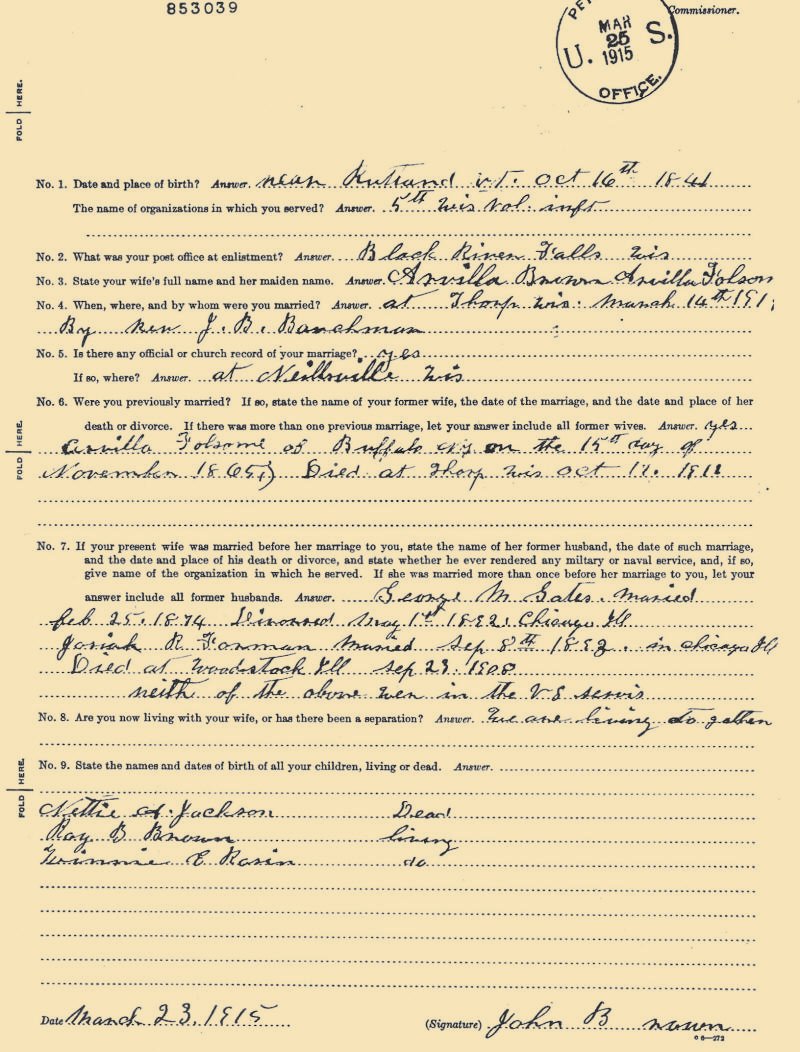 853039
Commissioner.
PE
MAR
25
1915
U. S.
OFFICE.
FOLD HERE.
No. 1. Date and place of birth? Answer. near Rutland vt. Oct 16th 1841
The name of organizations in which you served? Answer. 5th Wis Vol. inft
No. 2. What was your post office at enlistment? Answer. Black River Falls Wis
No. 3. State your wife's full name and her maiden name. Answer. Arvilla Brown Arvilla Folsom
No. 4. When, where, and by whom were you married? Answer. at Thorp Wis. March 14th 191
By Rev J. B. Bachman
No. 5. Is there any official or church record of your marriage? yes
If so, where? Answer. at Neillsville Wis
No. 6. Were you previously married? If so, state the name of your former wife, the date of the marriage, and the date and place of her
death or divorce. If there was more than one previous marriage, let your answer include all former wives. Answer. yes
FOLD HERE.
Arvilla Folsome of Buffalo Ny on the 15th day of
November 1865) Died at Thorp Wis Oct 11. 1911
No. 7. If your present wife was married before her marriage to you, state the name of her former husband, the date of such marriage,
and the date and place of his death or divorce, and state whether he ever rendered any miltary or naval service, and, if so,
give name of the organization in which he served. If she was married more than once before her marriage to you, let your
answer include all former husbands. Answer. George M Gates. Married
feb 25. 1874 Divorsed May 1st 1892. Chicago Ill
Josiah R Forman Married Sep 8th 1892. in chicago Ill
Died at Woodstock Ill sep 23. 1908
neith of the above wer in the U S servis
No. 8. Are you now living with your wife, or has there been a separation? Answer. We are living to gather
No. 9. State the names and dates of birth of all your children, living or dead. Answer.
FOLD HERE.
Nettie A. Jackson Dead
Roy B Brown living
Winnie E Rosin do
Date March 23, 1915 (Signature) John Brown
6—272